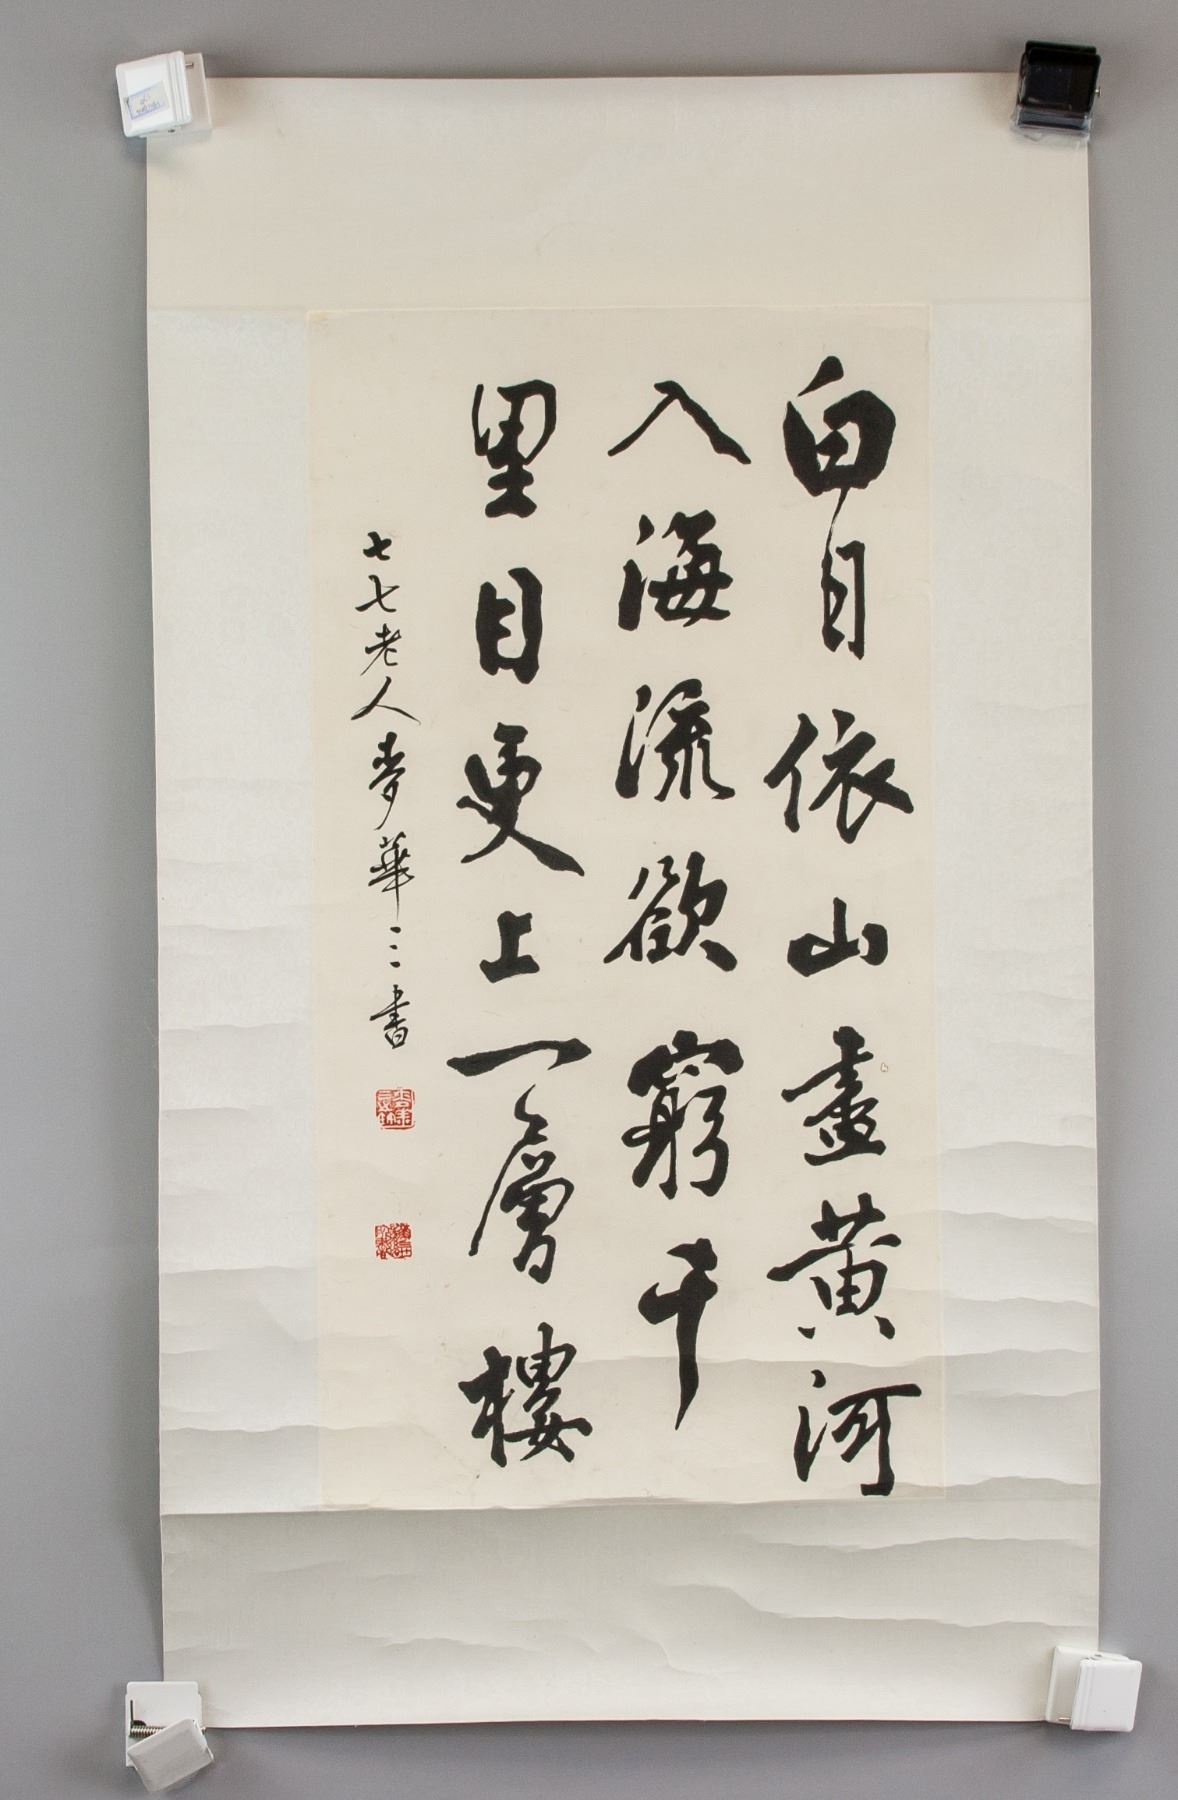 白日依山盡黃河
入海流欲窮千
里目更上一層樓
七七老人夢華三書